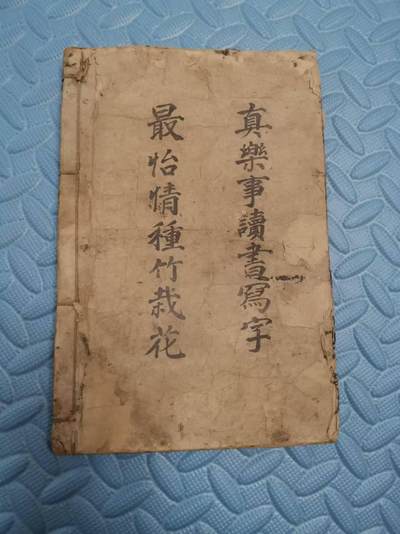 真樂事讀書寫字
最怡情種竹栽花